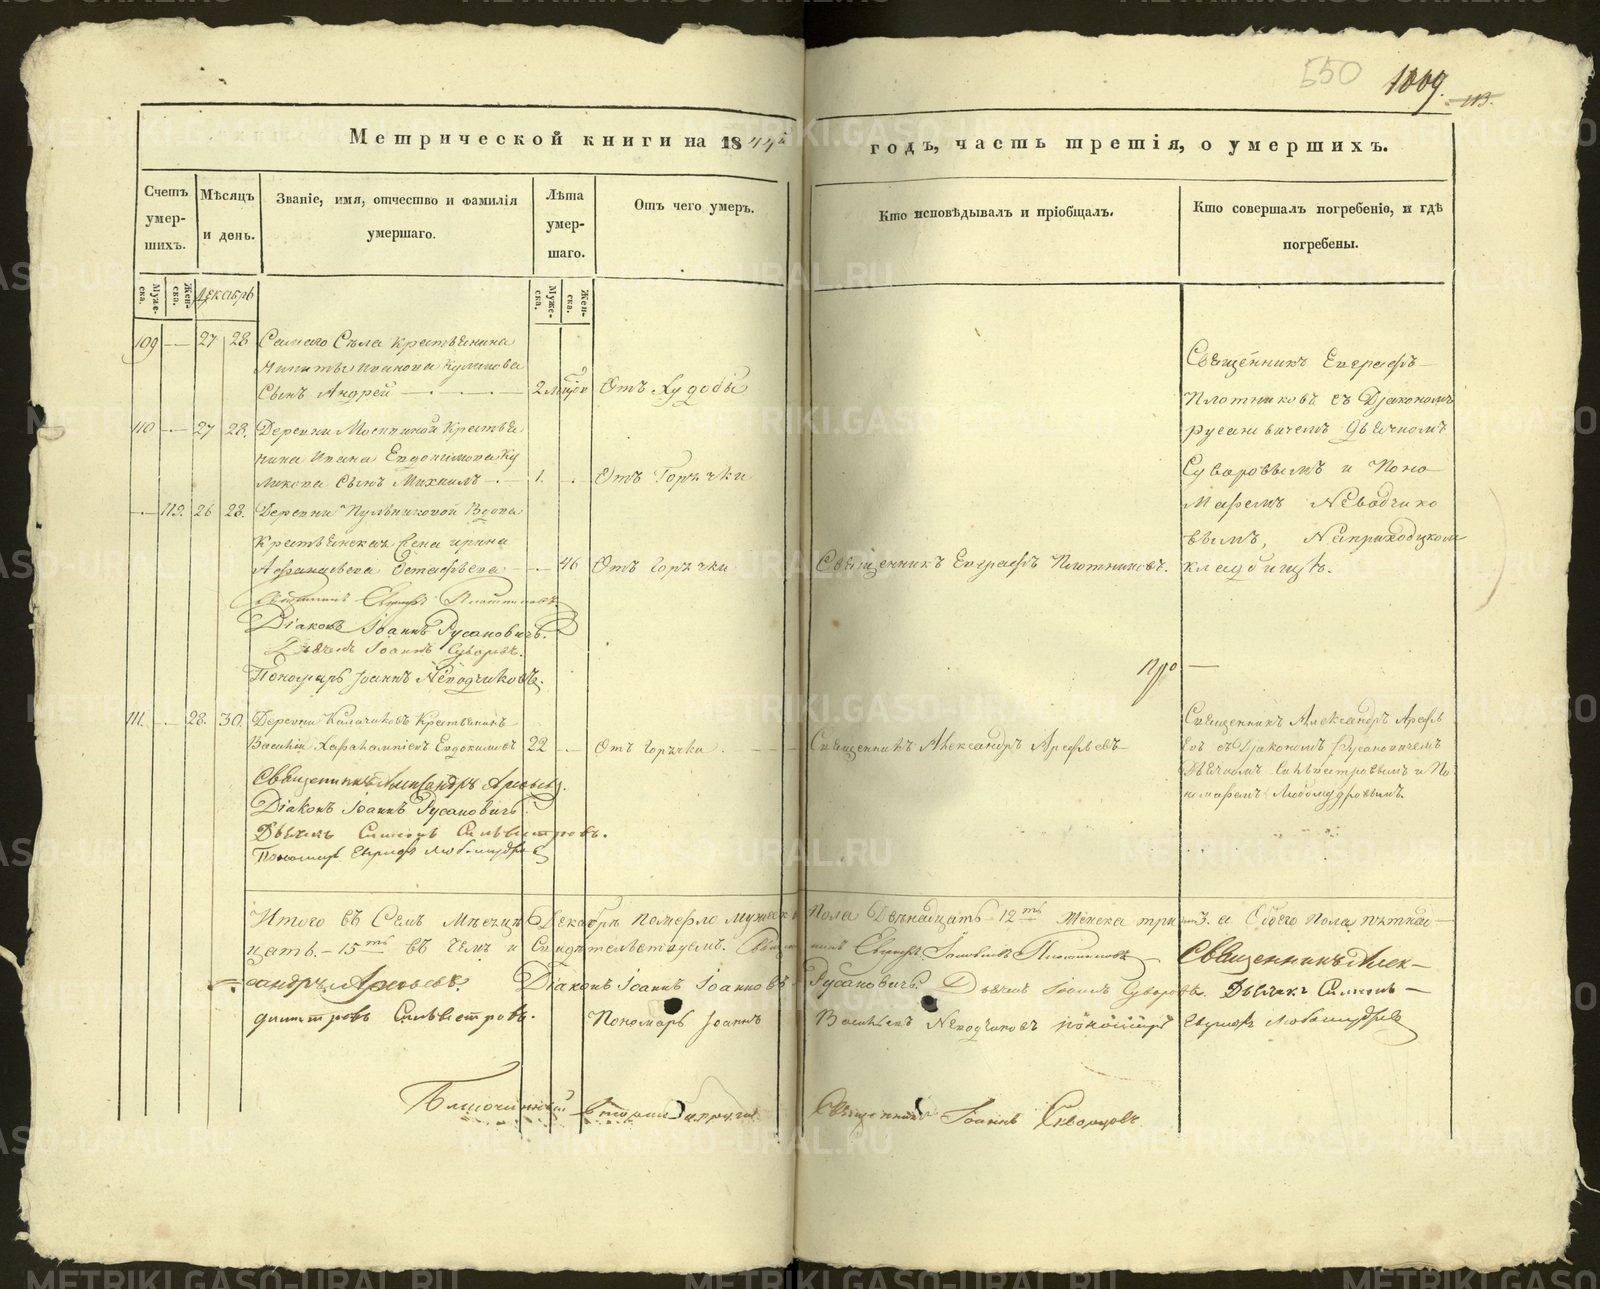 550
1009.
Метрической книги на 1844й
годъ, часть третія, о умершихъ.
Счетъ умер- шихъ.
Мѣсяцъ и день.
Званіе, имя, отчество и фамилія умершаго.
Лѣта умер- шаго.
Отъ чего умеръ.
Кто исповѣдывалъ и пріобщалъ.
Кто совершалъ погребеніе, и гдѣ погребены.
Муже- ска.
Жен- ска.
Декабрь
Муже- ска.
Жен- ска.
109 27 28 Самаго Села крестьянина
Никиты Иванова Куликова
Сынъ Андрей 2 Отъ Худобы
110 27 28. Деревни Крестья
нина Ивана Евдокимова Ку
ликова Сынъ Михаилъ 1. Отъ Горячки
26 28. Деревни Вдова
Крестьянская Жена Ирина
Афанасьева Остафьева 46 Отъ Горячки
Священникъ Евграфъ Плотниковъ.
Священникъ Евграфъ
Плотниковъ съ Діакономъ
Русановичемъ Дьячкомъ
Суворовымъ и Поно
маремъ Неводчико
вымъ, На приходскомъ
кладбищѣ.
Священникъ Евграфъ Плотниковъ.
Діаконъ Іоаннъ Русановичъ.
Дьячекъ Іоаннъ Суворовъ.
Пономарь Іоаннъ Неводчиковъ.
111. 28. 30. Деревни Крестьянинъ
Василій Харалампіевъ Евдокимовъ 22 Отъ Горячки
Священникъ Александръ Арефьевъ
Священникъ Александръ Арефь
евъ съ Діакономъ Русановичемъ
Дьячкомъ Сильвестровымъ и По
номаремъ Любомудровымъ.
Священникъ Александръ Арефьевъ.
Діаконъ Іоаннъ Русановичъ
Дьячекъ Симеонъ Сильвестровъ.
Пономарь Любомудровъ
Итого въ Семъ Мѣсяцѣ Декабрѣ померло мужеска Пола Двѣнадцать 12ть Женска три 3. а Обоего Пола пятнад
цать. 15ть въ чемъ и Свидѣтельствуемъ. Священникъ Евграфъ Плотниковъ Священникъ Алек
сандръ Арефьевъ. Діаконъ Іоаннъ Іоанновъ Русановичъ. Дьячекъ Іоаннъ Суворовъ. Дьячекъ Симеонъ
Димитровъ Сильвестровъ. Пономарь Іоаннъ Васильевъ Неводчиковъ пономарь Любомудровъ
Благочинный Священникъ Іоаннъ Скворцовъ